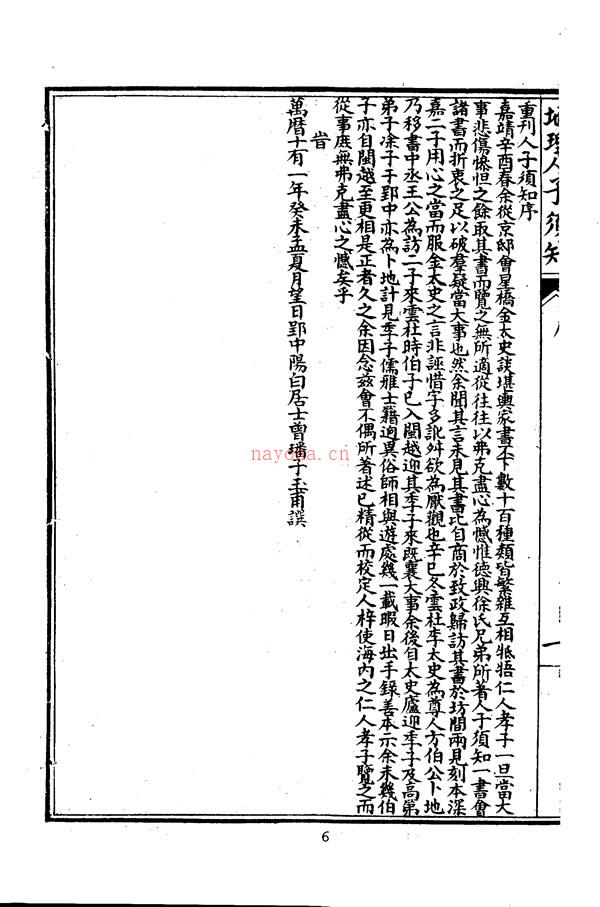 地理人子須知
序
一
重刊人子須知序
嘉靖辛酉春余從京邸會星橋金太史談堪輿家書不下數十百種類皆繁雜互相牴牾仁人孝子一旦當大
事悲傷慘怛之餘取其書而覽之無所適從往往以弗克盡心為憾惟德興徐氏兄弟所著人子須知一書會
諸書而折衷之足以破羣疑當大事也然余聞其言未見其書比自商於致政歸訪其書於坊間兩見刻本深
嘉二子用心之當而服金太史之言非誣惜字多訛舛欲為厭觀也辛巳冬雲杜李太史為尊人方伯公卜地
乃移書中丞王公為訪二子來雲杜時伯子已入閩越迎其季子來既襄大事余後自太史廬迎季子及高弟
弟子凃子于郢中亦為卜地計見季子儒雅士籍逈異俗師相與遊處幾一載暇日出手録善本示余未幾伯
子亦自閩越至更相是正者久之余因念兹會不偶所著述已精從而校定入梓使海内之仁人孝子覽之而
從事庶無弗克盡心之憾矣乎
旹
萬曆十有一年癸未孟夏月望日郢中陽白居士曾璠子玉甫譔
nayona.cn
6